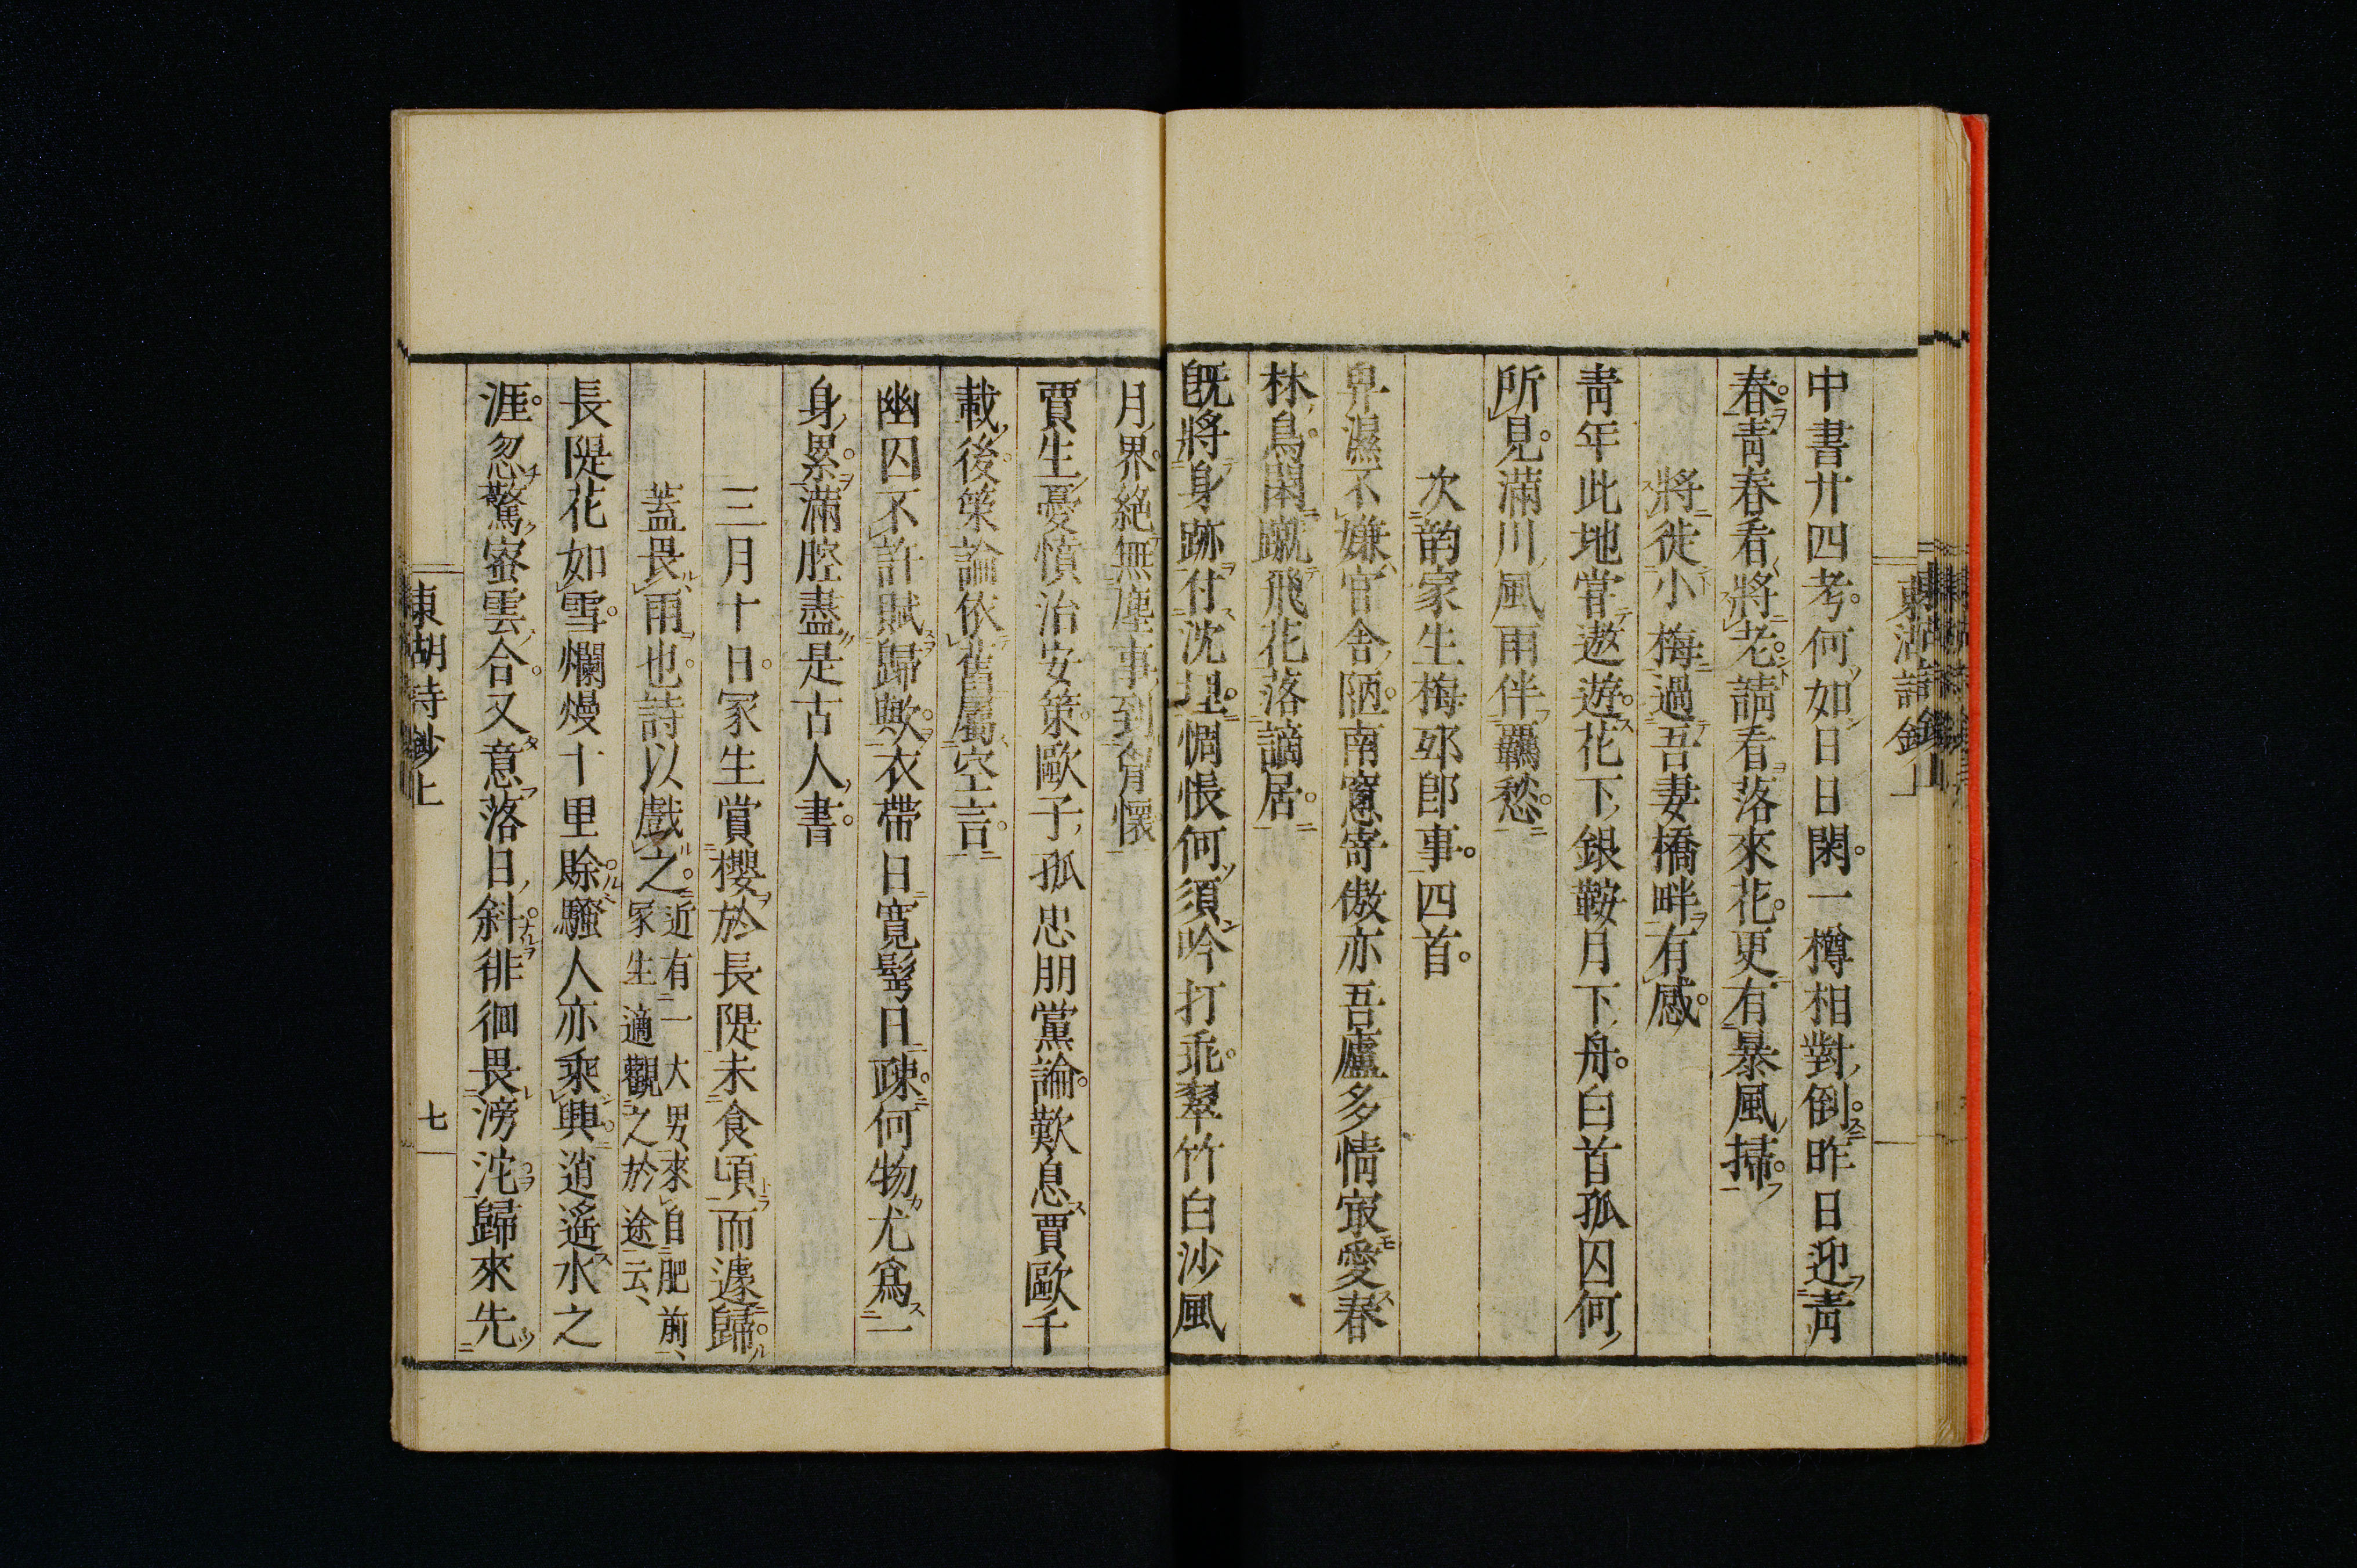 中書廿四考何如日日閑一樽相對倒昨日迎靑
春靑春看將老請看落來花更有暴風掃
將徙小梅過吾妻橋畔有感
靑年此地嘗遨遊花下銀鞍月下舟白首孤囚何
所見滿川風雨伴羈愁
次韵家生梅邨卽事四首
卑濕不嫌官舍陋南窻寄傲亦吾廬多情㝡愛春
林鳥閑蹴飛花落謫居
既將身跡付沈埋惆悵何須吟打乖翠竹白沙風
月界絕無塵事到胷懷
賈生憂憤治安策歐子孤忠朋黨論歎息賈歐千
載後策論依舊屬空言
幽囚不許賦歸歟衣帶日寬髩日疎何物尤爲一
身累滿腔盡是古人書
三月十日冢生賞櫻於長隄未食頃而遽歸
蓋畏雨也詩以戲之近有一大男來自肥前、
冢生適觀之於途云、
長隄花如雪爛熳十里賖騷人亦乘興逍遙水之
涯忽驚密雲合又意落日斜徘徊畏滂沱歸來先
東湖詩鈔上
七